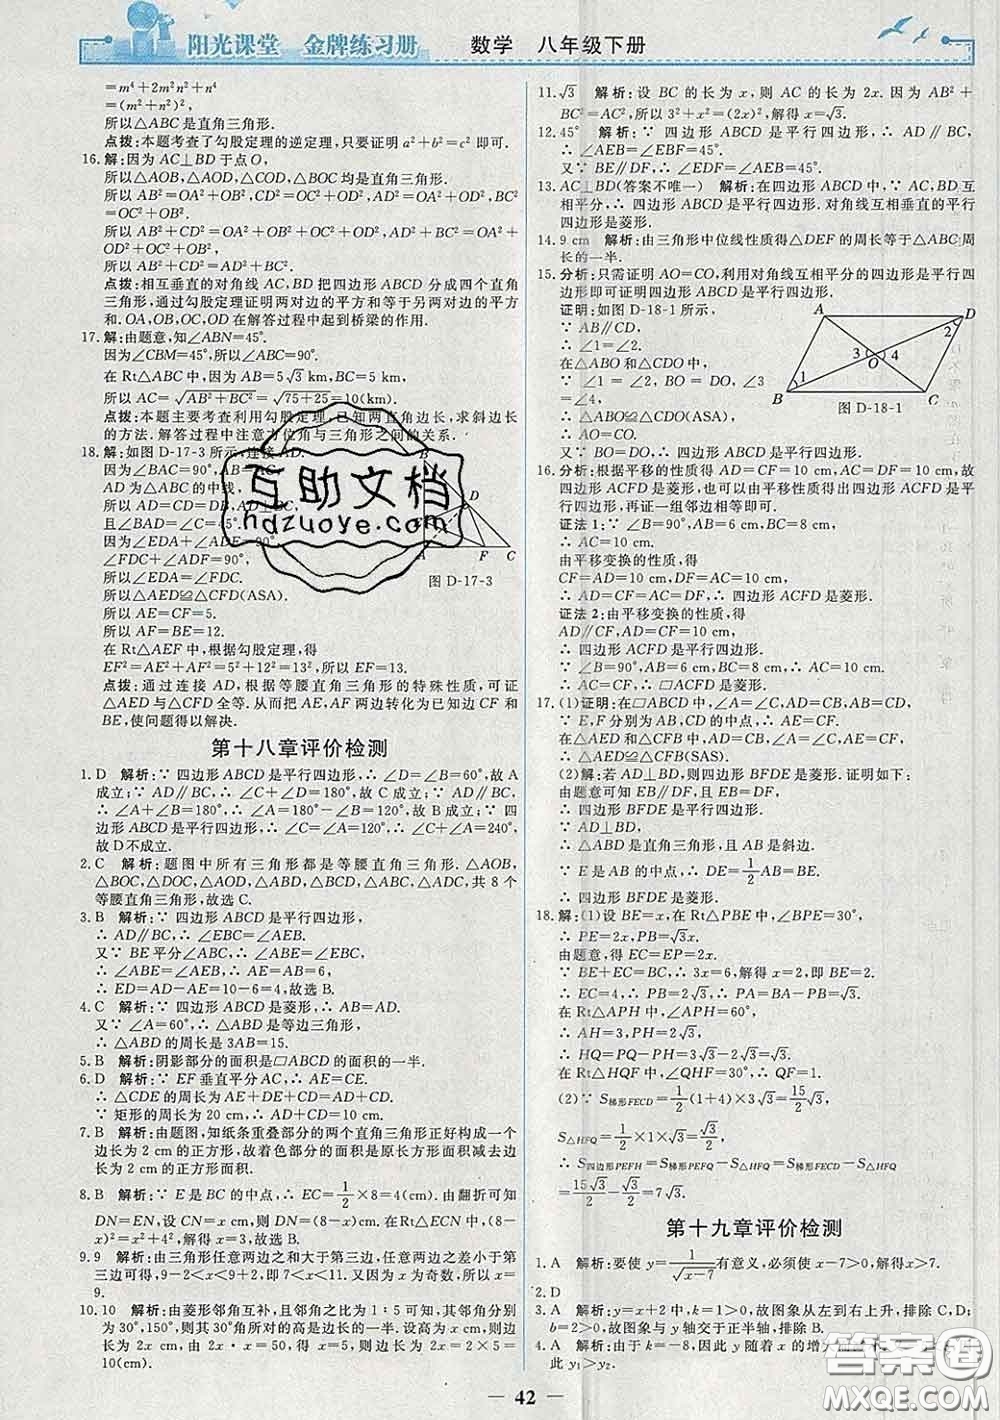 阳光课堂 金牌练习册 数学 八年级下册
=m⁴+2m²n²+n⁴
=(m²+n²)²,
所以△ABC是直角三角形.
点拨:本题考查了勾股定理的逆定理,只要证明a²+b²=c²即可.
16.解:因为AC⊥BD于点O,
所以△AOB,△AOD,△COD,△BOC均是直角三角形.
所以AB²=OA²+OB²,CD²=OC²+OD²,AD²=OA²+OD²,
BC²=OC²+OB².
所以AB²+CD²=OA²+OB²+OC²+OD²,
AD²+BC²=OA²+OD²+OC²+OB².
所以AB²+CD²=AD²+BC².
点拨:相互垂直的对角线AC,BD把四边形ABCD分成四个直角
三角形,通过勾股定理证明两对边的平方和等于另两对边的平方
和.OA,OB,OC,OD在解答过程中起到桥梁的作用.
17.解:由题意,知∠ABN=45°.
因为∠CBM=45°,所以∠ABC=90°.
在Rt△ABC中,因为AB=5√3 km,BC=5 km,
所以AC=√(AB²+BC²)=√(75+25)=10(km).
点拨:本题主要考查利用勾股定理,已知两直角边长,求斜边长
的方法.解答过程中注意方位角与三角形之间的关系.
18.解:如图D-17-3所示,连接AD.
因为∠BAC=90°,AB=AC,
AD为△ABC的中线,
所以AD=DC=DB,AD⊥BC,
且∠BAD=∠C=45°.
因为∠EDA+∠ADF=90°,
∠FDC+∠ADF=90°,
所以∠EDA=∠FDC.
所以△AED≌△CFD(ASA).
所以AE=CF=5.
所以AF=BE=12.
在Rt△AEF中,根据勾股定理,得
EF²=AE²+AF²=5²+12²=13²,所以EF=13.
点拨:通过连接AD,根据等腰直角三角形的特殊性质,可证
△AED与△CFD全等.从而把AE,AF两边转化为已知边CF和
BE,使问题得以解决.
D
F C
图D-17-3
第十八章评价检测
1.D 解析:∵四边形ABCD是平行四边形,∴∠D=∠B=60°,故A
成立;∵AD∥BC,∴∠C+∠D=180°,故C成立;∵AD∥BC,
∴∠A+∠B=180°,∴∠A=180°-∠B=120°,故B成立;∵四
边形ABCD是平行四边形,∴∠C=∠A=120°,∴∠C+∠A=240°,
故D不成立.
2.C 解析:题图中所有三角形都是等腰直角三角形.△AOB,
△BOC,△DOC,△AOD,△ABD,△BCD,△ABC,△ADC,共8个
等腰直角三角形,故选C.
3.B 解析:∵四边形ABCD是平行四边形,
∴AD∥BC,∴∠AEB=∠EBC.
又∵BE平分∠ABC,∴∠ABE=∠EBC,
∴∠ABE=∠AEB,∴AB=AE=6,
∴ED=AD-AE=10-6=4,故选B.
4.C 解析:∵四边形ABCD是菱形,∴AB=AD.
又∵∠A=60°,∴△ABD是等边三角形,
∴△ABD的周长是3AB=15.
5.B 解析:阴影部分的面积是▱ABCD的面积的一半.
6.D 解析:∵EF垂直平分AC,∴AE=CE.
∴△CDE的周长为AE+DE+CD=AD+CD.
∵矩形的周长为20 cm,∴AD+CD=10 cm.
7.B 解析:由题图,知纸条重叠部分的两个直角三角形正好构成一个
边长为2 cm的正方形,故着色部分的面积是原长方形面积减去边长
为2 cm的正方形面积.
8.B 解析:∵E是BC的中点,∴EC=1/2×8=4(cm).由翻折可知
DN=EN,设CN=x cm,则DN=(8-x)cm.在Rt△ECN中,(8-
x)²=x²+4²,解得x=3.
9.9 解析:由三角形任意两边之和大于第三边,任意两边之差小于第
三边可得,9-2<x<9+2,即7<x<11.又因为x为奇数,所以x=
9.
10.10 解析:由菱形邻角互补,且邻角之比为1∶5可知,其邻角分别
为30°,150°,则其30°角所对的高是边长的一半.设高为x cm,则
边长为2x cm.由2x·x=50,得x=5,所以边长=2x=2×5=
10(cm).
11.√3 解析:设BC的长为x,则AC的长为2x.因为AB²+
BC²=AC²,所以3²+x²=(2x)²,解得x=√3.
12.45° 解析:∵四边形ABCD是平行四边形,∴AD∥BC,
∴∠AEB=∠EBF=45°.
又∵BE∥DF,∴∠EDF=∠AEB=45°.
13.AC⊥BD(答案不唯一) 解析:在四边形ABCD中,∵AC,BD互
相平分,∴四边形ABCD是平行四边形.对角线互相垂直的平行
四边形是菱形.
14.9 cm 解析:由三角形中位线性质得△DEF的周长等于△ABC周
长的一半.
15.分析:只需证明AO=CO,利用对角线互相平分的四边形是平行四
边形即可证明四边形ABCD是平行四边形.
证明:如图D-18-1所示,
∵AB∥CD,
∴∠1=∠2.
在△ABO和△CDO中,
∵∠1=∠2,BO=DO,∠3
=∠4,
∴△ABO≌△CDO(ASA).
∴AO=CO.
又∵BO=DO,∴四边形ABCD是平行四边形.
A D
2
3 4
O
1
B C
图D-18-1
16.分析:根据平移的性质得AD=CF=10 cm,AC=DF=10 cm,故
四边形ACFD是菱形,也可以由平移性质得出四边形ACFD是平
行四边形,再证一组邻边相等即可.
证法1:∵∠B=90°,AB=6 cm,BC=8 cm,
∴AC=10 cm.
由平移变换的性质,得
CF=AD=10 cm,DF=AC=10 cm,
∴AD=CF=AC=DF=10 cm,∴四边形ACFD是菱形.
证法2:由平移变换的性质,得
AD∥CF,AD=CF=10 cm,
∴四边形ACFD是平行四边形.
∵∠B=90°,AB=6 cm,BC=8 cm,∴AC=10 cm.
∴AC=CF,∴▱ACFD是菱形.
17.(1)证明:在▱ABCD中,∠A=∠C,AD=CB,AB=CD.
∵E,F分别为AB,CD的中点,∴AE=CF.
在△AED和△CFB中,AD=CB,∠A=∠C,AE=CF,
∴△AED≌△CFB(SAS).
(2)解:若AD⊥BD,则四边形BFDE是菱形.证明如下:
由题意可知EB∥DF,且EB=DF,
∴四边形BFDE是平行四边形.
∵AD⊥BD,
∴△ABD是直角三角形,且AB是斜边.
∵E是AB的中点,∴DE=1/2AB=BE.
∴四边形BFDE是菱形.
18.解:(1)设BE=x,在Rt△PBE中,∠BPE=30°,
∴PE=2x,PB=√3x.
由题意,得EC=EP=2x.
∵BE+EC=BC,∴3x=6,解得x=2,即BE=2.
∴EC=4,PB=2√3,∴PA=√3.
在Rt△APH中,∠APH=60°,
∴AH=3,PH=2√3,
∴HQ=PQ-PH=3√3-2√3=√3.
在Rt△HQF中,∠QHF=30°,∴QF=1.
(2)∵S梯形FECD=1/2(1+4)×3√3=15/2√3,
S△HFQ=1/2×1×√3=√3/2,
∴S四边形PEFH=S梯形PEFQ-S△HFQ=S梯形FECD-S△HFQ
=15√3/2-√3/2=7√3.
第十九章评价检测
1.A 解析:要使y=1/√(x-7)有意义,必须使x-7>0.解得x>7.
2.D
3.A 解析:y=x+2中,k=1>0,故图象从左到右上升,排除C,D;
b=2>0,故图象与y轴交于正半轴,排除B.
4.A 解析:由于k=-8,因此y随着x的增大
此y₁>y₂.
42
互助文档
hdzuoye.com
答案圈
MXQE.COM